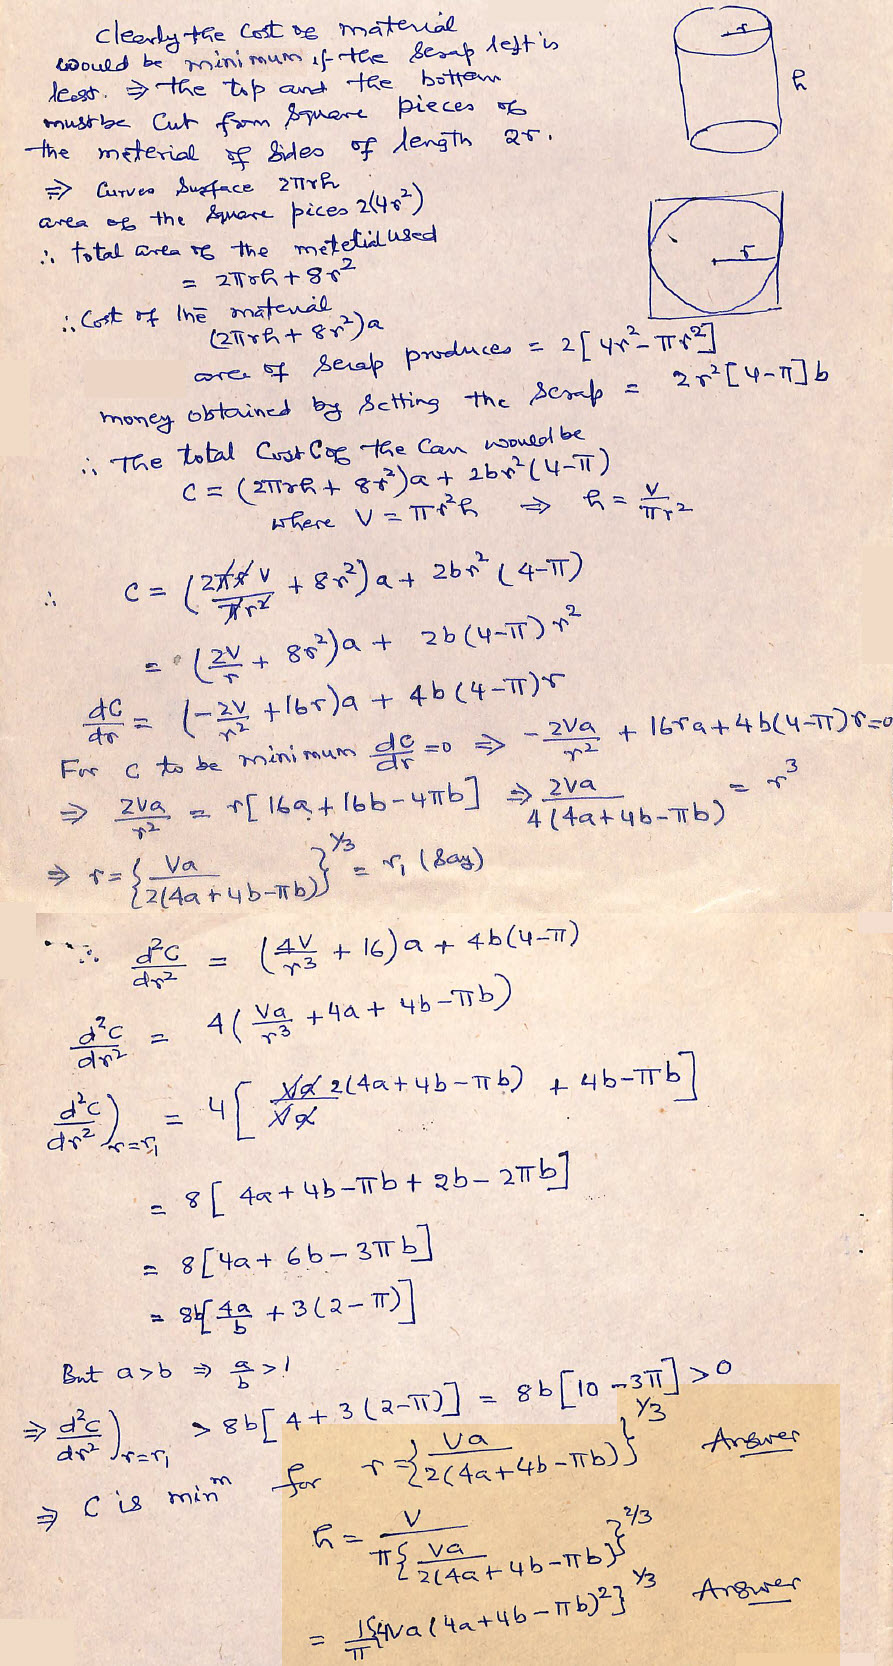 Clearly the Cost of material
would be minimum if the Scrap left is
least. ⇒ the top and the bottom
must be Cut from Square pieces of
the meterial of Sides of length 2r.
⇒ Curves Surface 2πrh
area of the Square pices 2(4r²)
∴ total area of the metetial used
= 2πrh + 8r²
∴ Cost of the material
(2πrh + 8r²)a
area of Scrap produces = 2[4r² - πr²]
money obtained by Setting the Scrap = 2r²[4-π]b
∴ The total Cost C of the Can would be
C = (2πrh + 8r²)a + 2br²(4-π)
where V = πr²h ⇒ h = V/πr²
∴ C = (2πrV/πr² + 8r²)a + 2br²(4-π)
= (2V/r + 8r²)a + 2b(4-π)r²
dC/dr = (-2V/r² + 16r)a + 4b(4-π)r
For C to be minimum dc/dr = 0 ⇒ -2Va/r² + 16ra + 4b(4-π)r = 0
⇒ 2Va/r² = r[16a + 16b - 4πb] ⇒ 2Va/4(4a+4b-πb) = r³
⇒ r = {Va/2(4a+4b-πb)}^1/3 = r₁ (Say)
∴ d²C/dr² = (4V/r³ + 16)a + 4b(4-π)
d²C/dr² = 4(Va/r³ + 4a + 4b - πb)
d²C/dr²)r=r₁ = 4[Va 2(4a+4b-πb)/Va + 4b-πb]
= 8[4a+4b-πb + 2b - 2πb]
= 8[4a + 6b - 3πb]
= 8b[4a/b + 3(2-π)]
But a>b ⇒ a/b > 1
⇒ d²C/dr²)r=r₁ > 8b[4 + 3(2-π)] = 8b[10-3π] > 0
⇒ C is minᵐ for r = {Va/2(4a+4b-πb)}^1/3 Answer
h = V/π{Va/2(4a+4b-πb)}^2/3
= 1/π{4Va(4a+4b-πb)²}^1/3 Answer
r
h
r